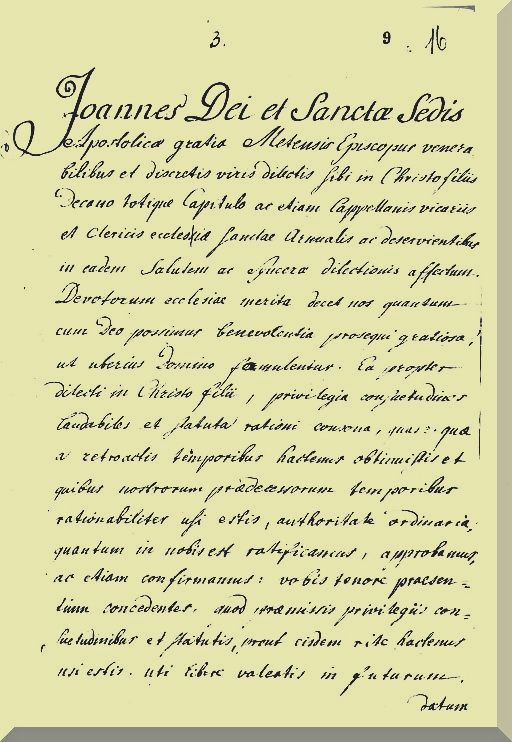 3. 9 16
Joannes Dei et Sanctæ Sedis
Apostolicæ gratia Metensis Episcopus venera
bilibus et discretis viris dilectis sibi in Christo filiis
Decano totique Capitulo ac etiam Cappellanis vicariis
et Clericis ecclesiæ Sanctae Arnualis ac deservientibus
in eadem Salutem ac Sincerae dilectionis affectum.
Devotorum ecclesiae merita decet nos quantum
cum Deo possumus benevolentia prosequi gratiosa,
ut uberius Domino famulentur. Ea propter
dilecti in Christo filii, privilegia consuetudines
laudabiles et statuta rationi consona, quae
a retroactis temporibus hactenus obtinuistis et
quibus nostrorum prædecessorum temporibus
rationabiliter usi estis, authoritate ordinaria,
quantum in nobis est ratificamus, approbamus,
ac etiam confirmamus: vobis tenore praesen=
tium concedentes. quod præmissis privilegiis con=
suetudinibus et statutis, prout eisdem rite hactenus
usi estis. uti libere valeatis in futurum.
datum